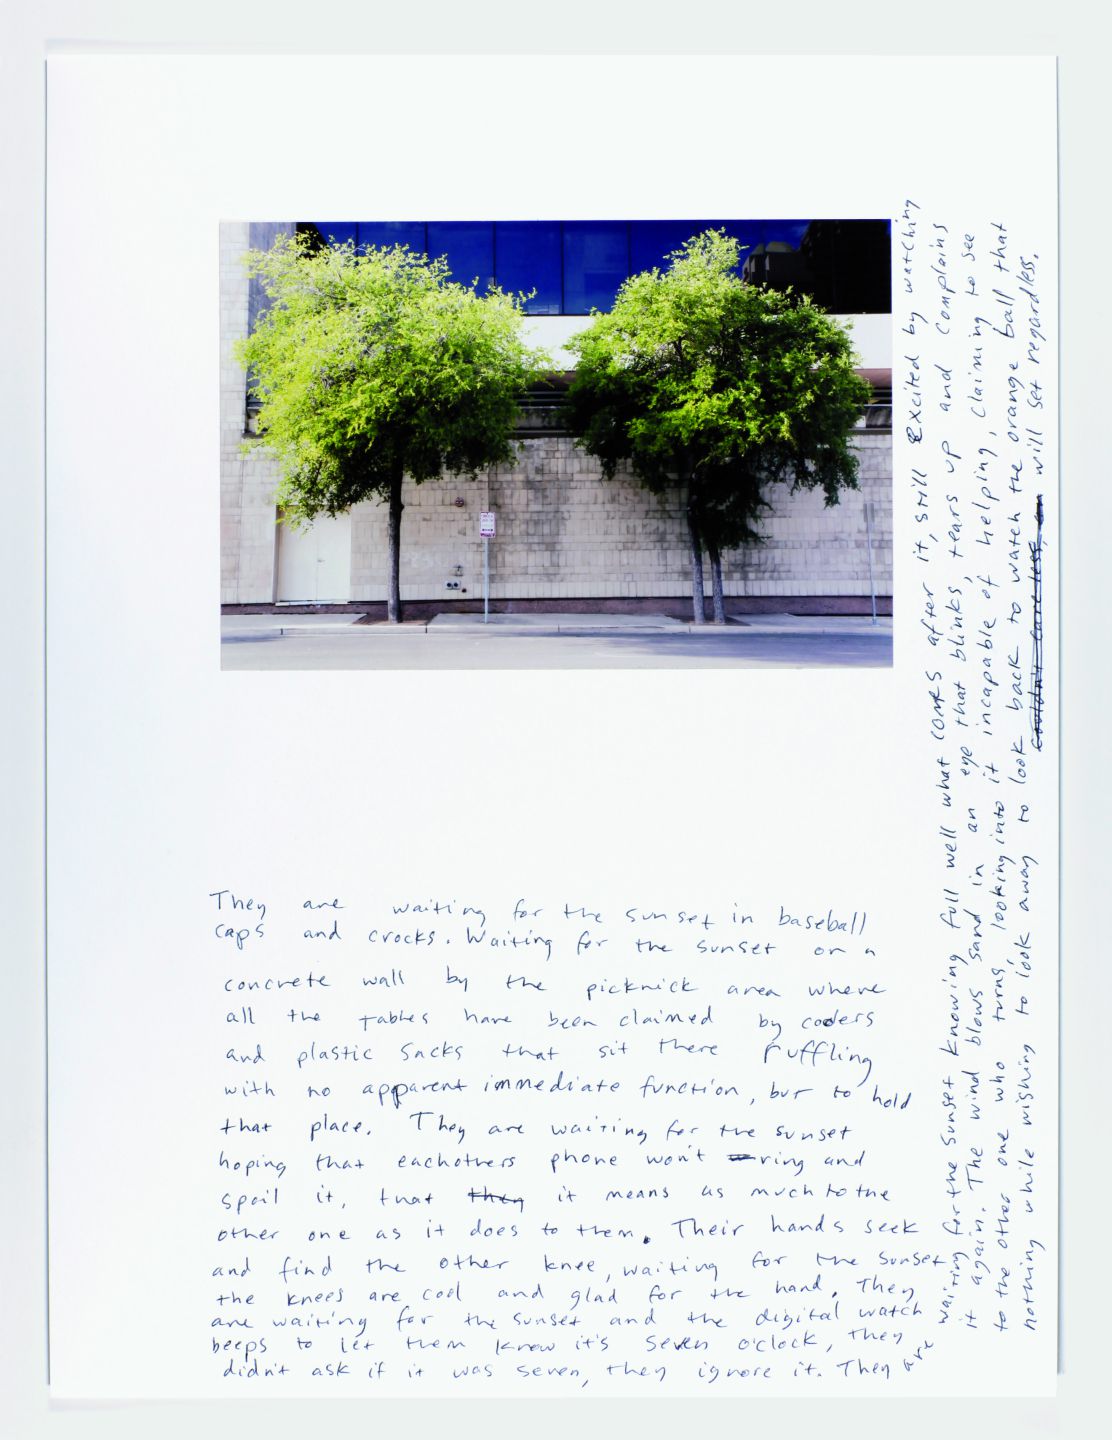 They are waiting for the sunset in baseball
caps and crocks. Waiting for the sunset on a
concrete wall by the picknick area where
all the tables have been claimed by coolers
and plastic sacks that sit there ruffling
with no apparent immediate function, but to hold
that place. They are waiting for the sunset
hoping that eachothers phone won't ring and
spoil it, that they it means as much to the
other one as it does to them. Their hands seek
and find the other knee, waiting for the sunset
the knees are cool and glad for the hand. They
are waiting for the sunset and the digital watch
beeps to let them know it's seven o'clock, they
didn't ask if it was seven, they ignore it. They are
waiting for the sunset knowing full well what comes after it, still excited by watching
it again. The wind blows sand in an eye that blinks, tears up and complains
to the other one who turns, looking into it incapable of helping, claiming to see
nothing while wishing to look away to look back to watch the orange ball that
couldn't care less, will set regardless.